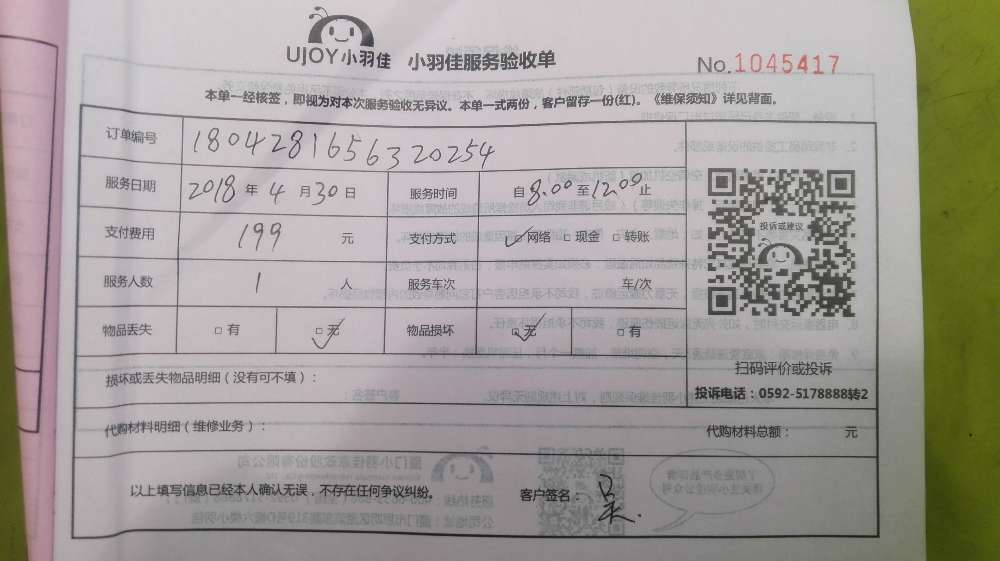 UJOY小羽佳 小羽佳服务验收单 No.1045417
本单一经核签，即视为对本次服务验收无异议。本单一式两份，客户留存一份(红)。《维保须知》详见背面。
订单编号 1804281656320254
服务日期 2018年4月30日 服务时间 自8.00至12.00止
投诉或建议
支付费用 199 元 支付方式 网络 现金 转账
服务人数 1 人 服务车次 车/次
物品丢失 有 无 物品损坏 无 有
扫码评价或投诉
损坏或丢失物品明细（没有可不填）：
投诉电话：0592-5178888转2
代购材料明细（维修业务）： 代购材料总额： 元
以上填写信息已经本人确认无误，不存在任何争议纠纷。 客户签名：吴